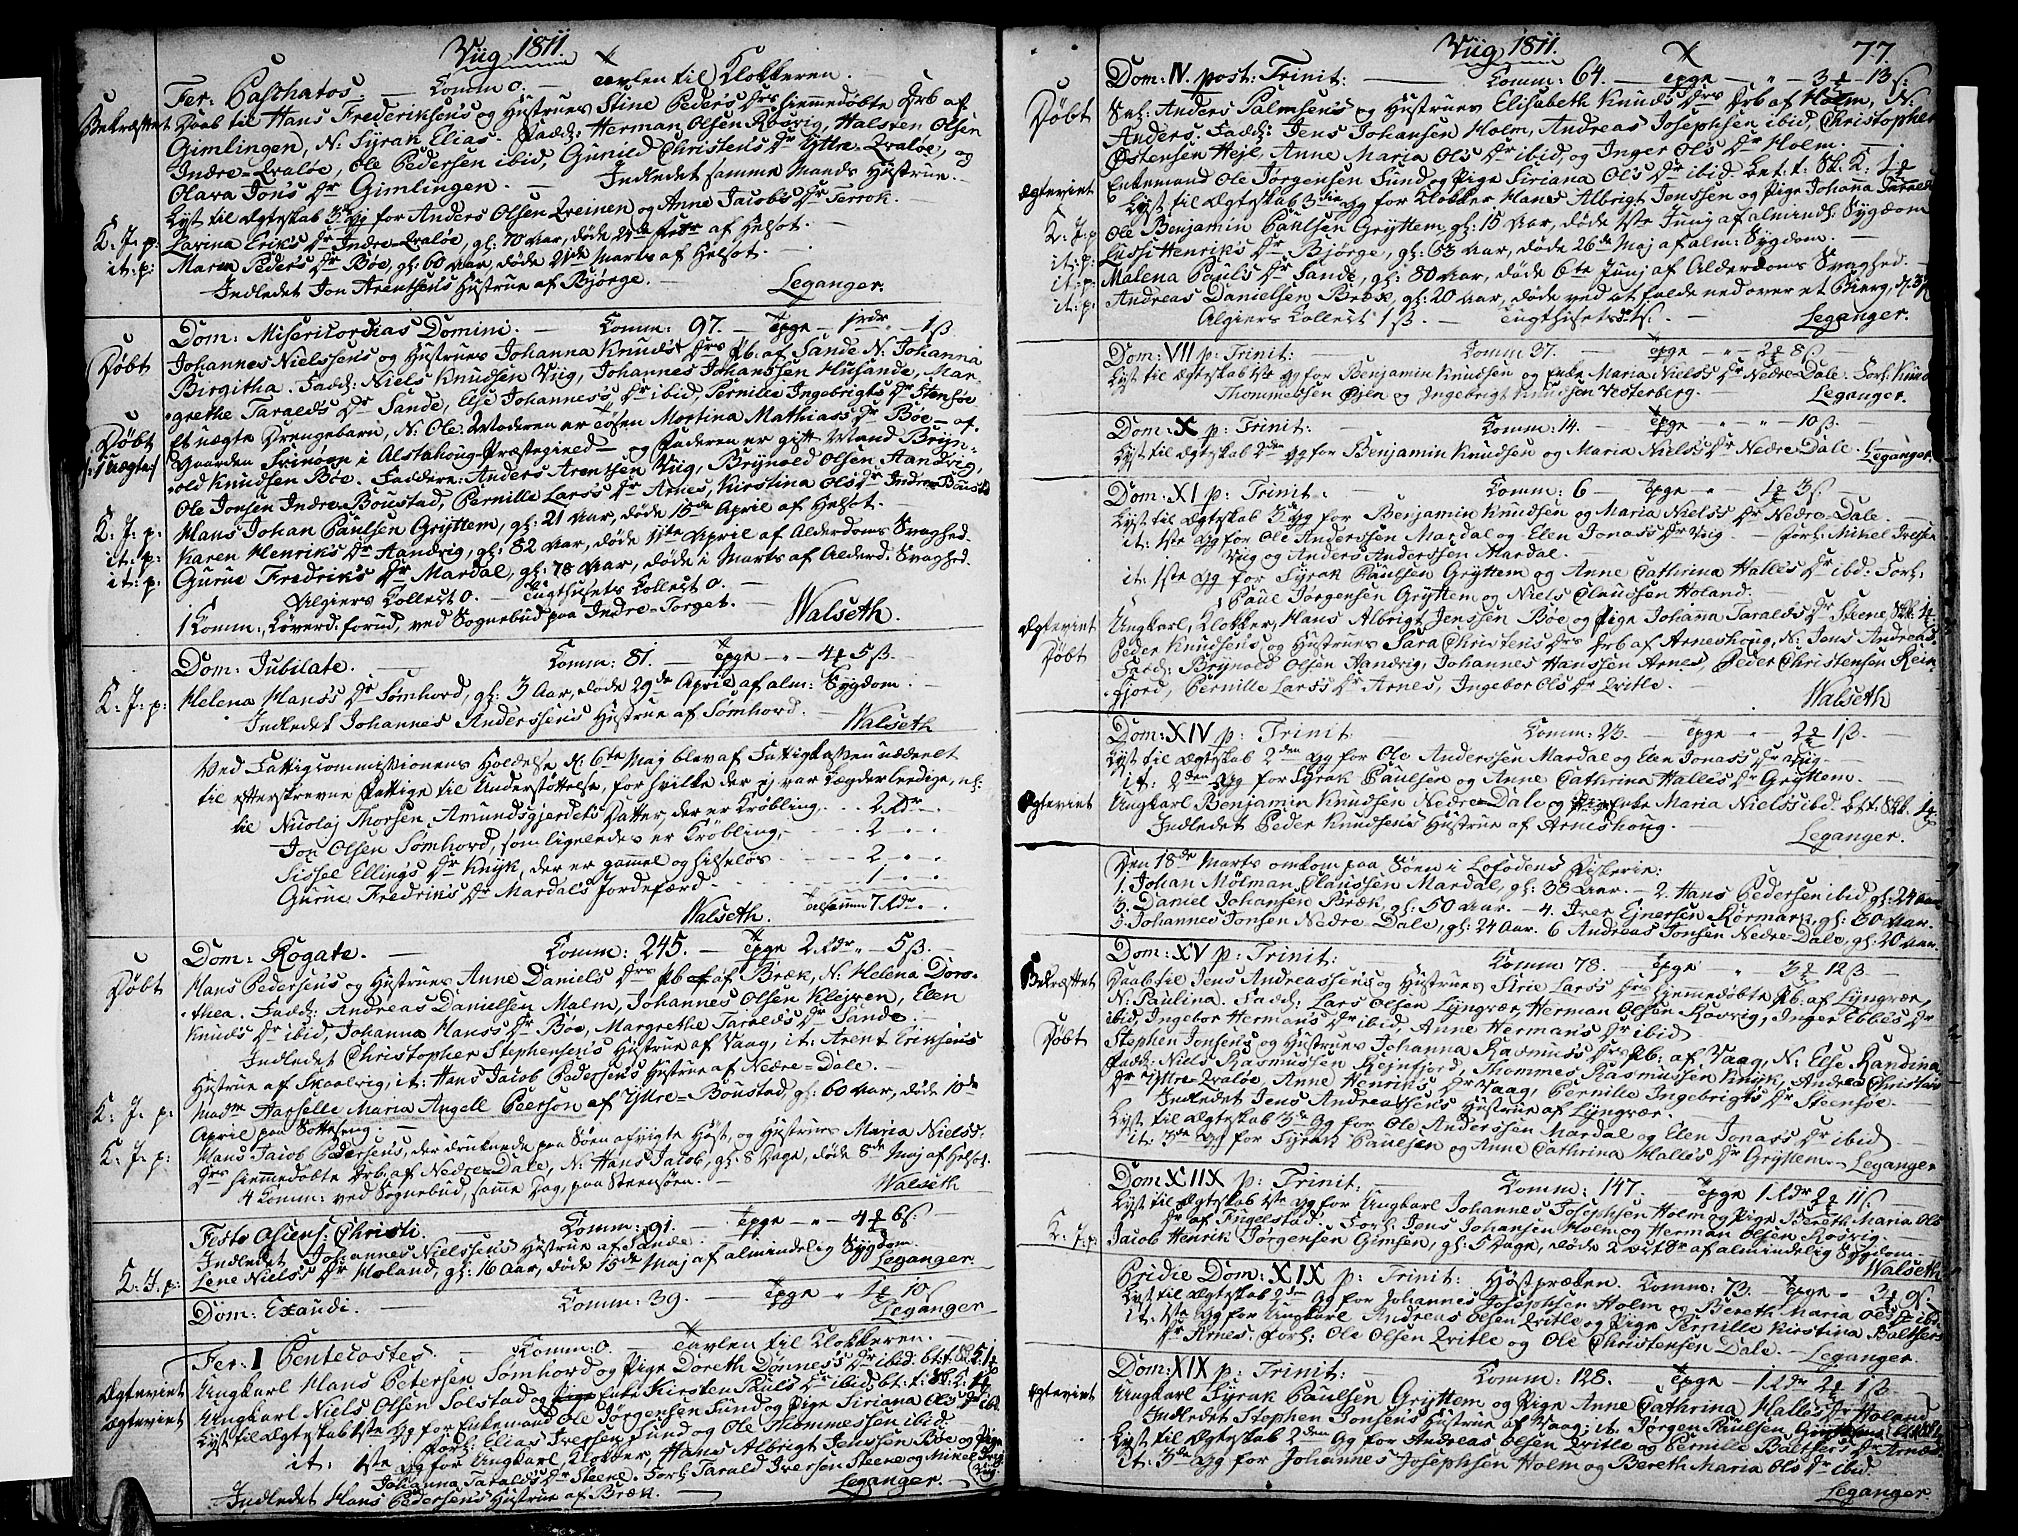 Viig 1811.
Fer: Paschatos. — Comm 0. — Tavlen til Klokkeren. —
Bekræftet Daab til Hans Frederiksens og Hustrues Stine Peders Drs hiemmedøbte Drb af
Gimlingen, N: Syrak Elias. Fadd: Herman Olsen Rosvig, Halsten Olsen
Indre-Qvaløe, Ole Pedersen ibid, Gunild Christens Dr Yttre-Qvaløe, og
Olava Jons Dr Gimlingen. — Indledet samme Mands Hustrue. —
Lyst til Ægteskab 3die Gg for Anders Olsen Qveinen og Anne Jacobs Dr Terrok. —
K: J: p: Karina Eriks Dr Indre-Qvaløe, gl: 70 Aar, døde af Helsot. —
it: p: Maren Peders Dr Bøe, gl: 60 Aar, døde Marts af Helsot. —
Indledet Jon Arentsens Hustrue af Bjørge. — Leganger.
Dom: Misericordias Domini. — Comm: 97. — Tpge — 1rdr — 1ß.
Døbt Johannes Nielssens og Hustrues Johanna Knuds Drs Pb. af Sande N. Johanna
Birgitha. Fadd: Niels Knudsen Viig, Johannes Johanssen Husande, Mar-
grethe Taralds Dr Sande, Else Johannes's Dr ibid, Pernille Ingebrigts Dr Stensøe
Døbt Et uægte Drengebarn, N: Ole. Moderen er Tøsen Mortina Mathias's Dr Bøe — af
(: Uægte :) Gaarden Svinøen i Alstahoug Præstegield — og Faderen er gift Mand Bryn-
old Knudsen Bøe. Faddere: Anders Arentsen Viig, Brynold Olsen Aandvig,
Ole Jonsen Indre-Boustad, Pernille Lars's Dr Arnes, Kirstina Ols Dr Indre-Boustad
K: J: p: Hans Johan Paulsen Gryttem, gl: 21 Aar, døde 15de April af Helsot. —
it: p: Karen Henriks Dr Aandvig, gl: 82 Aar, døde 11te April af Alderdoms Svaghed.
it: p: Gurue Fredriks Dr Mardal, gl: 78 Aar, døde i Marts af Alderd. Svaghed.
Algiers Collect 0. — Tugthusets Collect 0. —
1 Komm: Løverd. forud, ved Sognebud paa Indre-Torget. — Walseth.
Dom: Jubilate. — Comm: 81. — Tpge — " 4 5 ß. —
K: J: p: Helena Hans's Dr Sømhord, gl: 3 Aar, døde 29de April af alm: Sygdom. —
Indledet Johannes Anderssens Hustrue af Sømhord. — Walseth
Ved Fattigcommissionens Holdelse d. 6te Maj blev af Fattigkassen uddeelt
til efterskrevne Fattige til Understøttelse, for hvilke der ej var Lægder ledige, nl:
til Nicolaj Thorsen Amundsgjordets Datter, der er Krøbling . . . 2 Rdr.
Jon Olsen Sømhord, som ligeledes er Krøbling, . . . 2
Sissel Ellings Dr Knyk, der er gammel og hielpeløs . . . 2
Gurue Fredriks Dr Mardals Jordefærd . . . 1
Walseth. Tilsamm 7 Rdr.
Dom: Rogate. — Comm: 245. — Tpge 2 Rdr " 5 ß. —
Døbt Hans Pedersens og Hustrues Anne Daniels Drs Pb af Bræk, N. Helena Doro-
thea. Fadd: Andreas Danielsen Malm, Johannes Olsen Klejven, Elen
Knuds Dr ibid, Johanna Hans's Dr Bøe, Margrethe Taralds Dr Sande. —
Indledet Christopher Stephensens Hustrue af Vaag, it: Arent Eriksens
Hustrue af Skaalvig, it: Hans Jacob Pedersens Hustrue af Nedre-Dale. —
K: J: p: Madm Aarselle Maria Angell Peerson af Yttre-Boustad, gl: 60 Aar, døde 10de
April paa Sotteseng. —
K: J: p: Hans Jacob Pedersens, der druknede paa Søen afvigte Høst, og Hustrues Maria Niels's
Drs hiemmedøbte Drb. af Nedre-Dale, N: Hans Jacob, gl: 8 Dage, døde 8de Maj af Helsot.
4 Komm: ved Sognebud, samme Dag, paa Steensøen. — Walseth
Festo Asiens: Christi. — Comm: 91. — Tpge — " — 4 6 ß. —
Indledet Johannes Nielssens Hustrue af Sande. —
K: J: p: Lene Niels's Dr Moland, gl: 16 Aar, døde 15de Maj af almindelig Sygdom. — Leganger.
Dom: Exaudi. — Comm: 39. — Tpge " 1 10 ß
Leganger
Fer: I Pentecostes. — Comm: 0. — Tavlen til Klokkeren. —
Ægteviet Ungkarl Hans Petersen Sømhord og Pige Doreth Dønnes's Dr ibid. bt: t: Sk: K:
Ægteviet Ungkarl Niels Olsen Solstad og Enke Kirsten Pauls Dr ibid. bt: t: Sk: K:
Lyst til Ægteskab 1ste Gg for Enkemand Ole Jørgensen Sund og Pige Siriana Ols Dr ibid.
Forl: Elias Iversen Sund og Ole Thommessen ibid.
it: 1ste Gg for Ungkarl, Klokker, Hans Albrigt Jenssen Bøe og Pige
Johanna Taralds Dr Steene. Forl: Tarald Iversen Steene og Mikel
Viig.
Indledet Hans Pedersens Hustrue af Bræk. — Leganger.
Viig 1811. 77.
Dom: IV. post: Trinit: — Comm: 64. — Tpge — " — 3 — 13 ß.
Døbt Anders Palmsens og Hustrues Elisabeth Knuds Drs Drb af Holm, N.
Anders. Fadd: Jens Johansen Holm, Andreas Josephsen ibid, Christopher
Østensen Heje, Anne Maria Ols Dr ibid, og Inger Ols Dr Holm. —
Ægteviet Enkemand Ole Jørgensen Sund og Pige Siriana Ols Dr ibid. bt: t: Sk: K:
Lyst til Ægteskab 3die Gg for Klokker Hans Albrigt Jenssen og Pige Johanna Taralds
K: J: p Ole Benjamin Paulsen Gryttem, gl: 15 Aar, døde 1ste Junj af almindl. Sygdom
it: p: Lusse Henriks Dr Bjørge, gl: 63 Aar, døde 26de Maj af alm: Sygdom. —
it: p: Malena Pauls Dr Sande, gl: 80 Aar, døde 6te Junj af Alderdoms Svaghed. —
it: p: Andreas Danielsen Bræk, gl: 20 Aar, døde ved at falde ned over et Bierg,
Algiers Collect 1 ß. — Tugthusets — Leganger.
Dom: VII p: Trinit: Comm 37. — Tpge " 2 8 ß
Lyst til Ægteskab 1ste Gg for Benjamin Knudsen og Enke Maria Niels's Dr Nedre-Dale. Forl: Knud
Thommessen Øien og Ingebrigt Knudsen Vesterberg. — Leganger.
Dom: X p: Trinit: — Comm: 14. — Tpge " — 10 ß.
Lyst til Ægteskab 2den Gg for Benjamin Knudsen og Maria Niels's Dr Nedre-Dale. Leganger
Dom: XI p: Trinit: Comm: 6 — Tpge " 1 3 ß
Lyst til Ægteskab 3die Gg for Benjamin Knudsen og Maria Niels's Dr Nedre-Dale. —
it: 1ste Gg for Ole Anderssen Mardal og Elen Jonas's Dr Viig. — Forl: Mikel Iversen
Viig og Anders Anderssen Mardal. —
it: 1ste Gg for Syrak Paulsen Gryttem og Anne Cathrina Halles Dr ibid: Forl:
Paul Jørgensen Gryttem og Niels Claudsen Holand. —
Ægteviet Ungkarl, Klokker, Hans Albrigt Jenssen Bøe og Pige Johanna Taralds Dr Steene,
Døbt Peder Knudsens og Hustrues Sara Christens Drs Drb af Arneshoug, N: Jens Andreas.
Fadd: Brynold Olsen Aandvig, Johannes Hanssen Arnes, Peder Christensen Rein-
fjord, Pernille Lars's Dr Arnes, Ingebor Ols Dr Qvitle. — Walseth
Dom: XIV p: Trinit Comm: 23. — Tpge — 2 1 ß.
Lyst til Ægteskab 2den Gg for Ole Anderssen Mardal og Elen Jonas's Dr Viig. —
it: 2den Gg for Syrak Paulsen og Anne Cathrina Halles Dr Gryttem. —
Ægteviet Ungkarl Benjamin Knudsen Nedre-Dale og Enke Maria Niels's ibid. bt:
Indledet Peder Knudsens Hustrue af Arneshoug. — Leganger.
Den 18de Marts omkom paa Søen i Lofodens Fiskerie:
1. Johan Mølman Claussen Mardal, gl: 38 Aar. — 2. Hans Pedersen ibid gl: 24 Aar
3. Daniel Johansen Bræk, gl: 50 Aar. — 4. Iver Ejnersen Kormark, gl: 30 Aar.
5. Johannes Jonsen Nedre-Dale, gl: 24 Aar. 6 Andreas Jonsen Nedre-Dale, gl: 20 Aar.
Dom: XV p: Trinit: Comm 78. Tpge " 3 12 ß —
Bekræftet Daab til Jens Andreassens og Hustrues Sirie Lars's Drs hjemmedøbte Pb. af Lyngvær,
N: Paulina. Fadd: Lars Olsen Lyngvær, Herman Olsen Rosvig, Inger Ebbes Dr
ibid, Ingebor Hermans Dr ibid, Anne Hermans Dr ibid
Døbt Stephen Jonsens og Hustrues Johanna Rasmus's Drs Pb: af Vaag, N: Else Randina.
Fadd: Niels Rasmussen Rejnfjord, Thommes Rasmussen Knyk, Andrea Christens
Dr Yttre-Qvaløe, Anne Henriks Dr Vaag, Pernille Ingebrigts Dr Steensøe. —
Indledet Jens Andreassens Hustrue af Lyngvær. —
Lyst til Ægteskab 3die Gg for Ole Anderssen Mardal og Elen Jonas's Dr ibid
it: 3die Gg for Syrak Paulsen og Anne Cathrina Halles Dr Gryttem. — Leganger
Dom XIIX p: Trinit: — Comm: 147. Tpge 1 Rdr 2 11 ß
Lyst til Ægteskab 1ste Gg for Ungkarl Johannes Josephsen Holm og Pige Bereth Maria Ols
Dr af Fugelstad. Forl: Jens Johansen Holm og Herman Olsen Rosvig.
K: J: p: Jacob Henrik Jørgensen Gimsen, gl: 5 Dage, døde 2 Octbr af almindelig Sygdom. —
Walseth
Pridie Dom: XIX p: Trinit: Høstpræken. Comm: 73. — Tpge " 3 9 ß.
Lyst til Ægteskab 2den Gg for Johannes Josephsen Holm og Bereth Maria Ols Dr ibid.
it: 1ste Gg for Ungkarl Andreas Olsen Qvitle og Pige Pernille Kirstina Balthers
Dr Arnes. Forl: Ole Olsen Qvitle og Ole Christensen Dale. — Leganger
Dom: XIX p: Trinit: Comm: 128. Tpge — 1 Rdr 2 1 ß
Ægteviet Ungkarl Syrak Paulsen Gryttem og Pige Anne Cathrina Halles Dr Holand
Indledet Stephen Jonsens Hustrue af Vaag; it: Jørgen Paulsen
Lyst til Ægteskab 2den Gg for Andreas Olsen Qvitle og Pernille Balthers Dr Arnæs
it: 3die Gg for Johannes Josephsen Holm og Bereth Maria Ols Dr ibid.
Leganger.